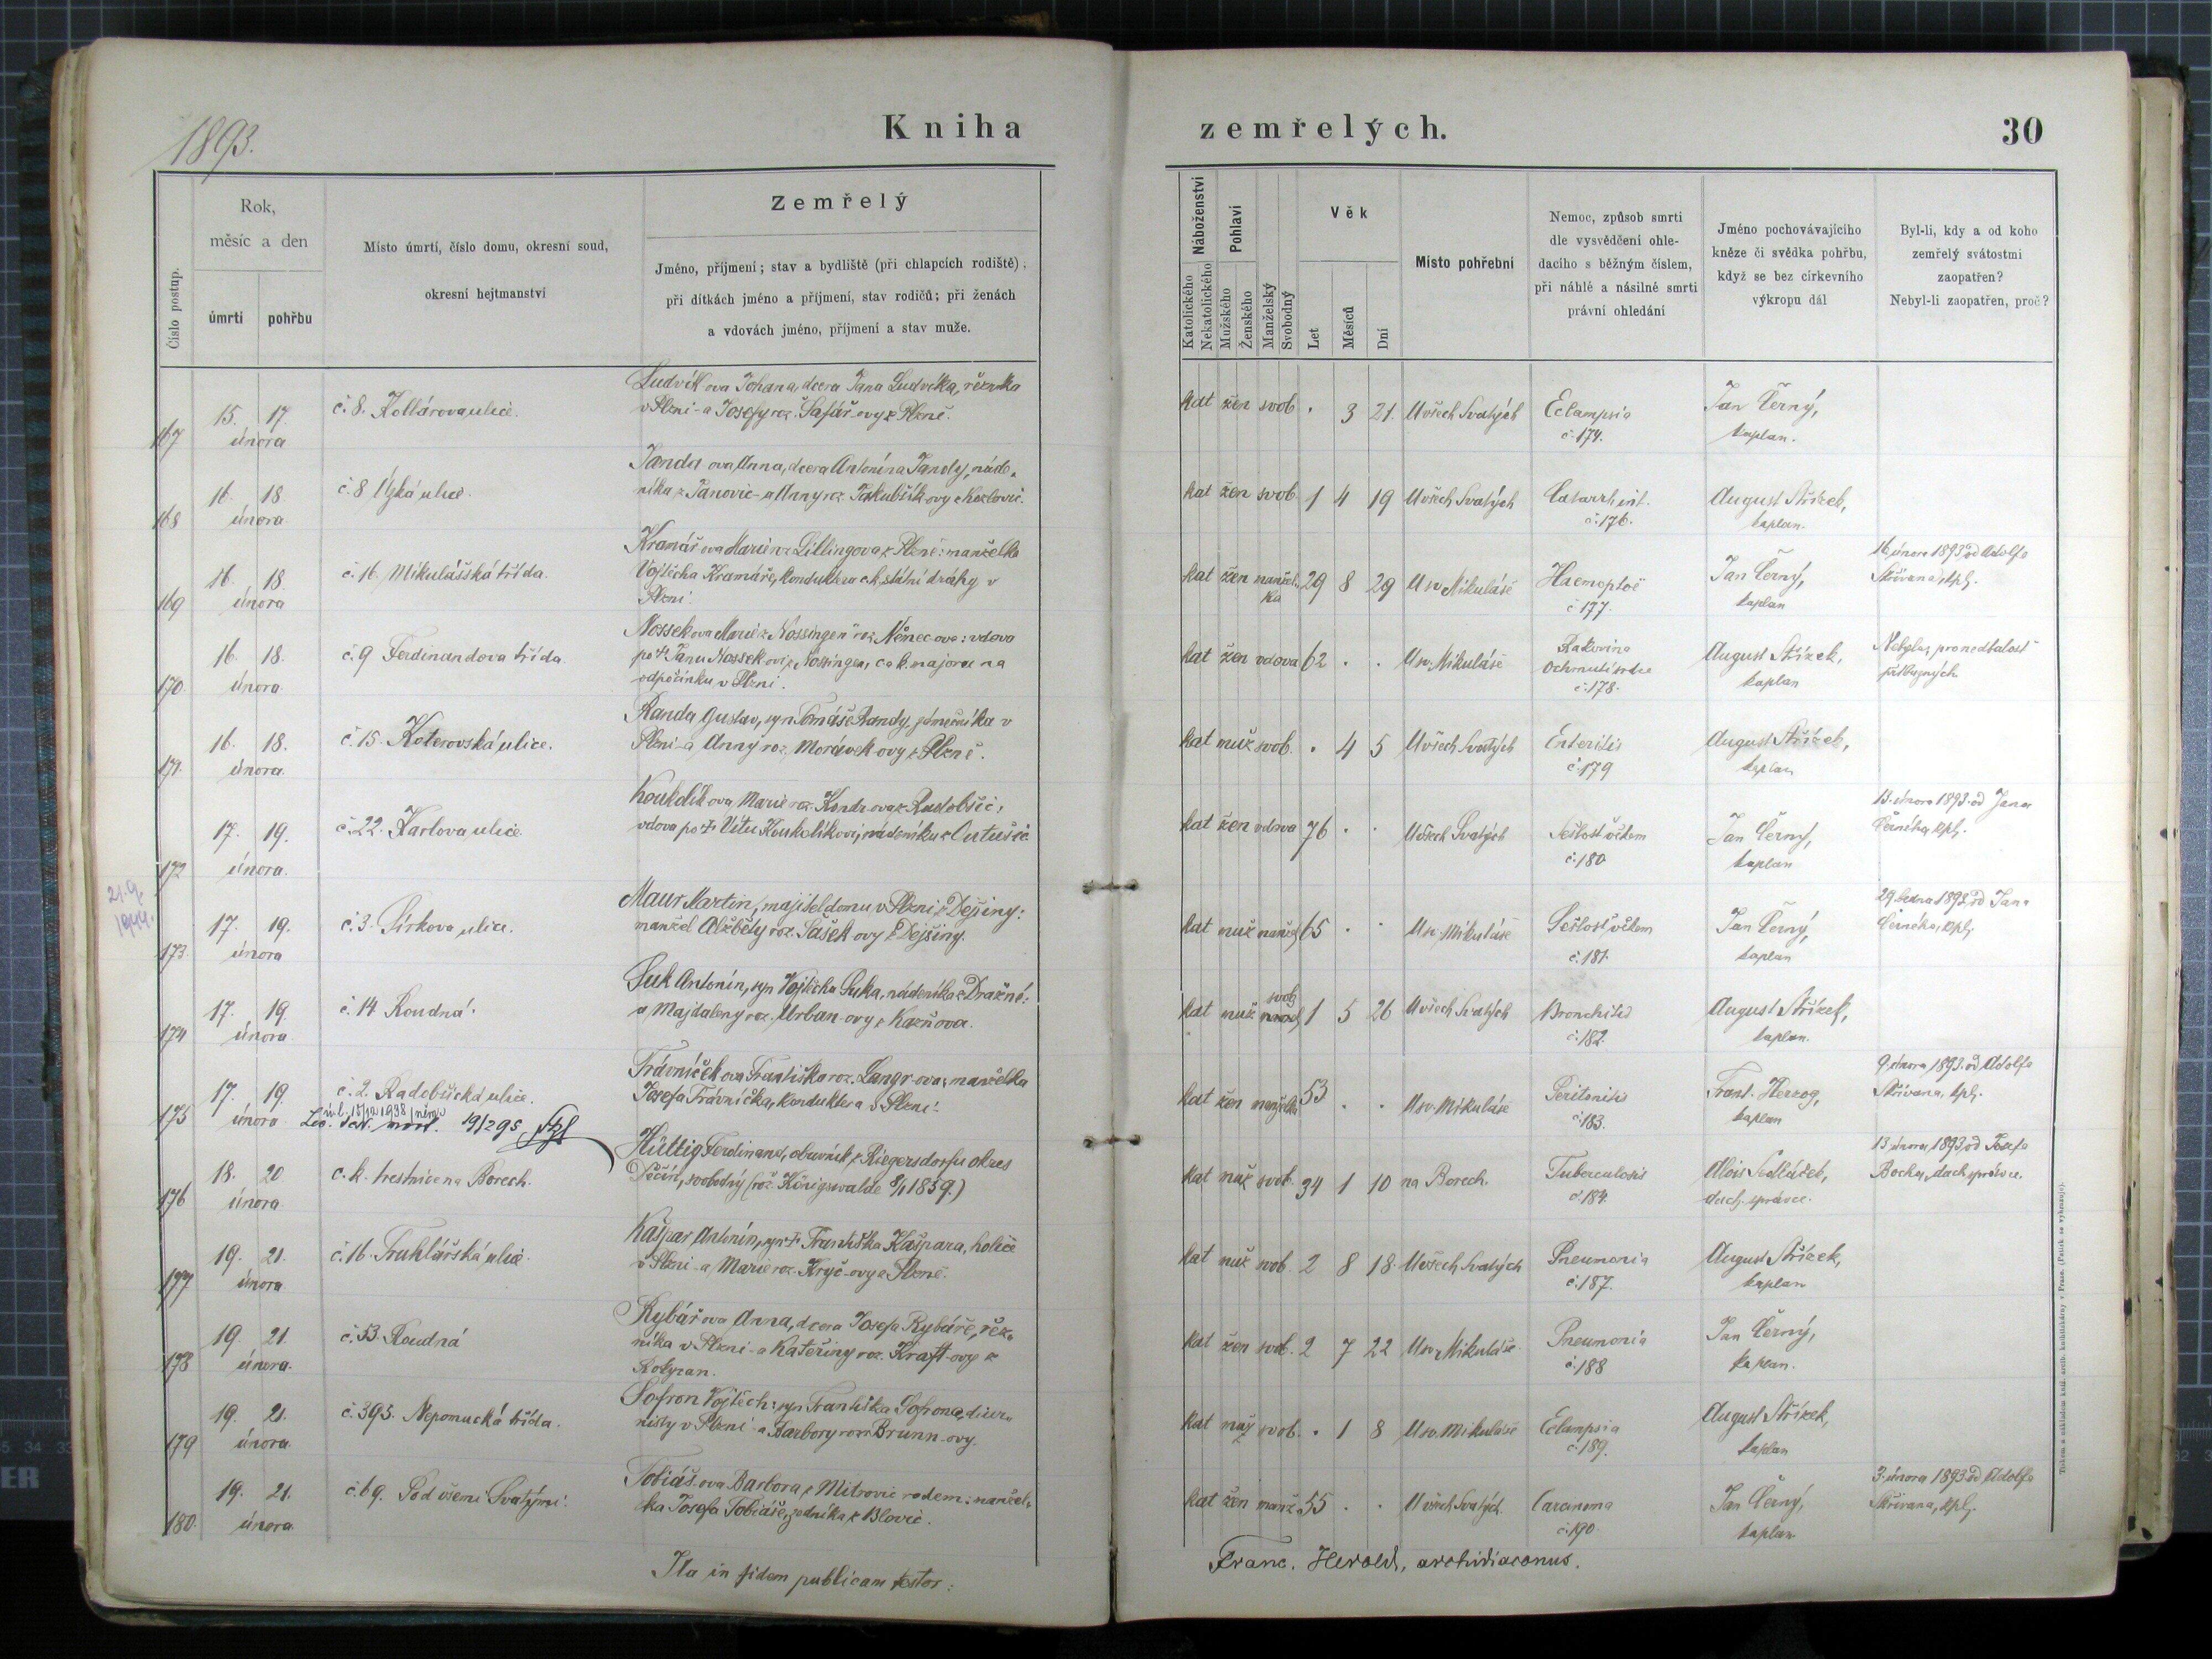 1893.
Kniha
zemřelých.
30
Číslo postup.
Rok,
měsíc a den
úmrtí
pohřbu
Místo úmrtí, číslo domu, okresní soud,
okresní hejtmanství
Zemřelý
Jméno, příjmení; stav a bydliště (při chlapcích rodiště);
při dítkách jméno a příjmení, stav rodičů; při ženách
a vdovách jméno, příjmení a stav muže.
Náboženství
Katolického
Nekatolického
Pohlaví
Mužského
Ženského
Manželský
Svobodný
Věk
Let
Měsíců
Dní
Místo pohřební
Nemoc, způsob smrti
dle vysvědčení ohle-
dacího s běžným číslem,
při náhlé a násilné smrti
právní ohledání
Jméno pochovávajícího
kněze či svědka pohřbu,
když se bez církevního
výkropu dál
Byl-li, kdy a od koho
zemřelý svátostmi
zaopatřen?
Nebyl-li zaopatřen, proč?
167
15. 17.
února
č. 8. Kollárova ulice.
Ludvík-ova Johana, dcera Jana Ludvíka, řezníka
v Plzni a Josefy roz. Šafář-ovy z Plzně.
kat žen svob. . 3 21. U všech Svatých
Eclampsia
č. 174.
Jan Černý,
kaplan.
168
16. 18
února
č. 8 Úzká ulice.
Janda ova Anna, dcera Antonína Jandy, náde-
níka z Janovic a Anny roz. Jakubšík-ovy z Kozlovic.
kat žen svob. 1 4 19 U všech Svatých
Catarrh int.
č. 176.
August Střízek,
kaplan.
169
16. 18.
února
č. 16. Mikulášská třída.
Kramář ova Marie roz. Lillingova z Plzně: manželka
Vojtěcha Kramáře, konduktera c. k. státní dráhy v
Plzni.
kat žen manžel-
ka
29 8 29 U sv. Mikuláše
Haemoptoë
č. 177.
Jan Černý,
kaplan
16. února 1893 od Adolfa
Skřivana, kpl.
170.
16. 18.
února.
č. 9 Ferdinandova třída.
Nossek ova Marie z Nossingen roz. Němec ova: vdova
po † Janu Nossek ovi z Nossingen, c. a k. majora na
odpočinku v Plzni.
kat žen vdova 62 . . U sv. Mikuláše
Rakovina
Ochrnutí srdce
č. 178.
August Střízek,
kaplan
Nebyla, pro nedbalost
příbuzných.
171.
16. 18.
února.
č. 15. Koterovská ulice.
Randa Gustav, syn Tomáše Randy, zámečníka v
Plzni a Anny roz. Morávek-ovy z Plzně.
kat muž svob. . 4 5 U všech Svatých
Enteritis
č. 179
August Střízek,
kaplan
172
17. 19.
února.
č. 22. Karlova ulice.
Koukolík ova Marie roz. Kondr-ova z Ludobšic,
vdova po † Vítu Koukolíkovi, nádeníku z Outušic
kat žen vdova 76 . . U všech Svatých
Sešlost věkem
č. 180
Jan Černý,
kaplan
13. února 1893. od Jana
Černého, kpl.
21.9.
1944.
173.
17. 19.
února
č. 3. Pirkova ulice.
Maur Martin, majitel domu v Plzni z Dejšiny:
manžel Alžběty roz. Sašek ovy z Dejšiny.
kat muž manžel 65 . . U sv. Mikuláše
Sešlost věkem
č. 181.
Jan Černý,
kaplan
29. ledna 1893 od Jana
Černého, kpl.
174
17. 19.
února.
č. 14 Roudná.
Suk Antonín, syn Vojtěcha Suka, nádeníka z Dražné:
a Majdaleny roz. Urban-ovy z Kaznova.
kat muž svob. 1 5 26 U všech Svatých
Bronchitis
č. 182.
August Střízek,
kaplan.
175
17. 19.
února
č. 2. Radobčická ulice.
Trávníček ova Františka roz. Langr-ova; manželka
Josefa Trávníčka, konduktera v Plzni.
kat žen manželka 53 . . U sv. Mikuláše
Peritonitis
č. 183.
Frant. Herzog,
kaplan
9. února 1893. od Adolfa
Skřivana, kpl.
176
18. 20
února.
c. k. trestnice na Borech.
Hüttig Ferdinand, obuvník z Riegersdorfu okres
Děčín, svobodný (roz. Königswalde 8/1 1859.)
kat muž svob. 34 1 10 na Borech.
Tuberculosis
č. 184.
Alois Sedláček,
duch. správce.
13 února 1893 od Josefa
Bocka, duch. správce.
177
19. 21.
února.
č. 16. Truhlářská ulice.
Kašpar Antonín, syn † Františka Kašpara, holiče
v Plzni a Marie roz. Kryč-ovy z Plzně.
kat muž svob. 2 8 18. U všech Svatých
Pneumonia
č. 187.
August Střízek,
kaplan
178
19. 21.
února.
č. 53. Roudná
Rybář ova Anna, dcera Josefa Rybáře, řez-
níka v Plzni a Kateřiny roz. Kraft-ovy z
Rokycan.
kat žen svob. 2 7 22 U sv. Mikuláše
Pneumonia
č. 188
Jan Černý,
kaplan.
179
19. 21.
února.
č. 393. Nepomucká třída.
Sofron Vojtěch: syn Františka Sofrona, diur-
nisty v Plzni a Barbory roz. Brunn-ovy.
kat muž svob. . 1 8 U sv. Mikuláše
Eclampsia
č. 189.
August Střízek,
kaplan
180.
19. 21.
února.
č. 69. Pod všemi Svatými.
Tobiáš ova Barbora z Mitrovic rodem: manžel-
ka Josefa Tobiáše, zedníka z Blovic.
kat žen manž. 55 . . U všech Svatých.
Carcinoma
č. 190.
Jan Černý,
kaplan
3. února 1893 od Adolfa
Skřivana, kpl.
Ita in fidem publicam testor:
Franc. Herold, archidiaconus.